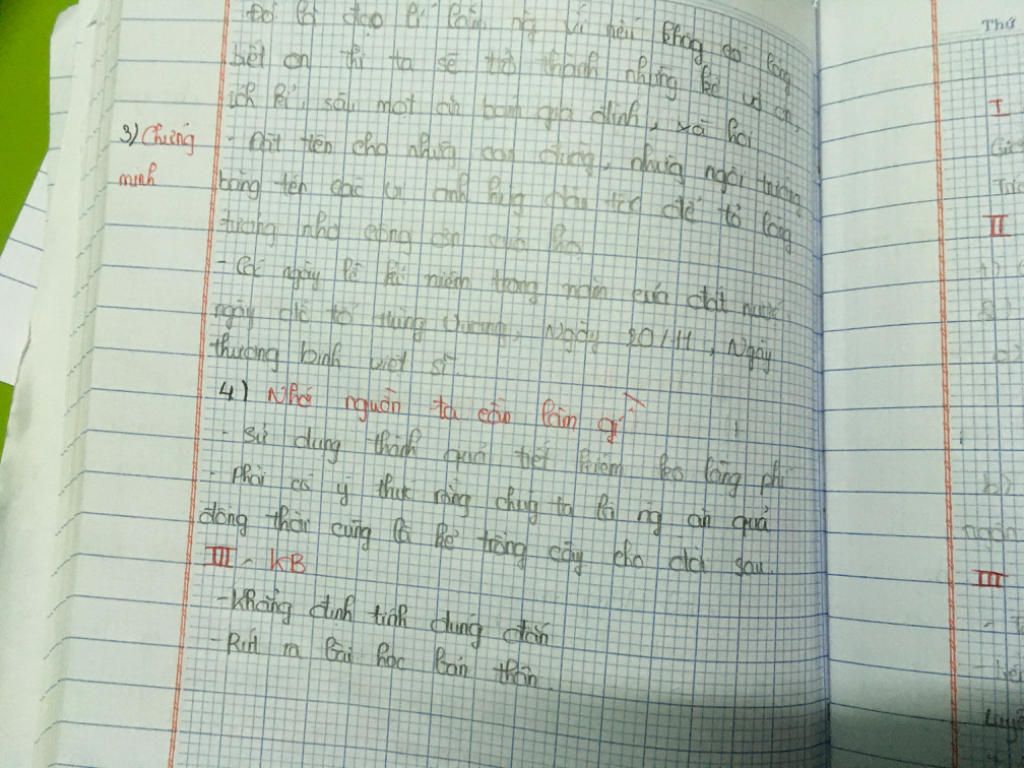 Đó là đạo lí làm ng vì nếu khog có lòng
biết ơn thì ta sẽ trở thành những kẻ vô ơn,
ích kỉ, sâu mọt ăn bám gia đình, xã hội
3) Chứng minh
- Đặt tên cho những con đường, những ngôi trường
bằng tên các vị anh hùg dân tộc để tỏ lòng
tưởng nhớ công ơn của họ
- Các ngày lễ kỉ niệm trong năm của đất nước
ngày giỗ tổ Hùng Vương, Ngày 20/11, Ngày
thương binh liệt sĩ
4) Nhớ nguồn ta cần làm gì?
- Sử dụng thành quả tiết kiệm ko lãng phí
- Phải có ý thức rằng chug ta là ng ăn quả
đồng thời cũng là kẻ trồng cây cho đời sau.
III - KB
- Khẳng định tính đúng đắn
- Rút ra bài học bản thân.
Thứ
I
II
III